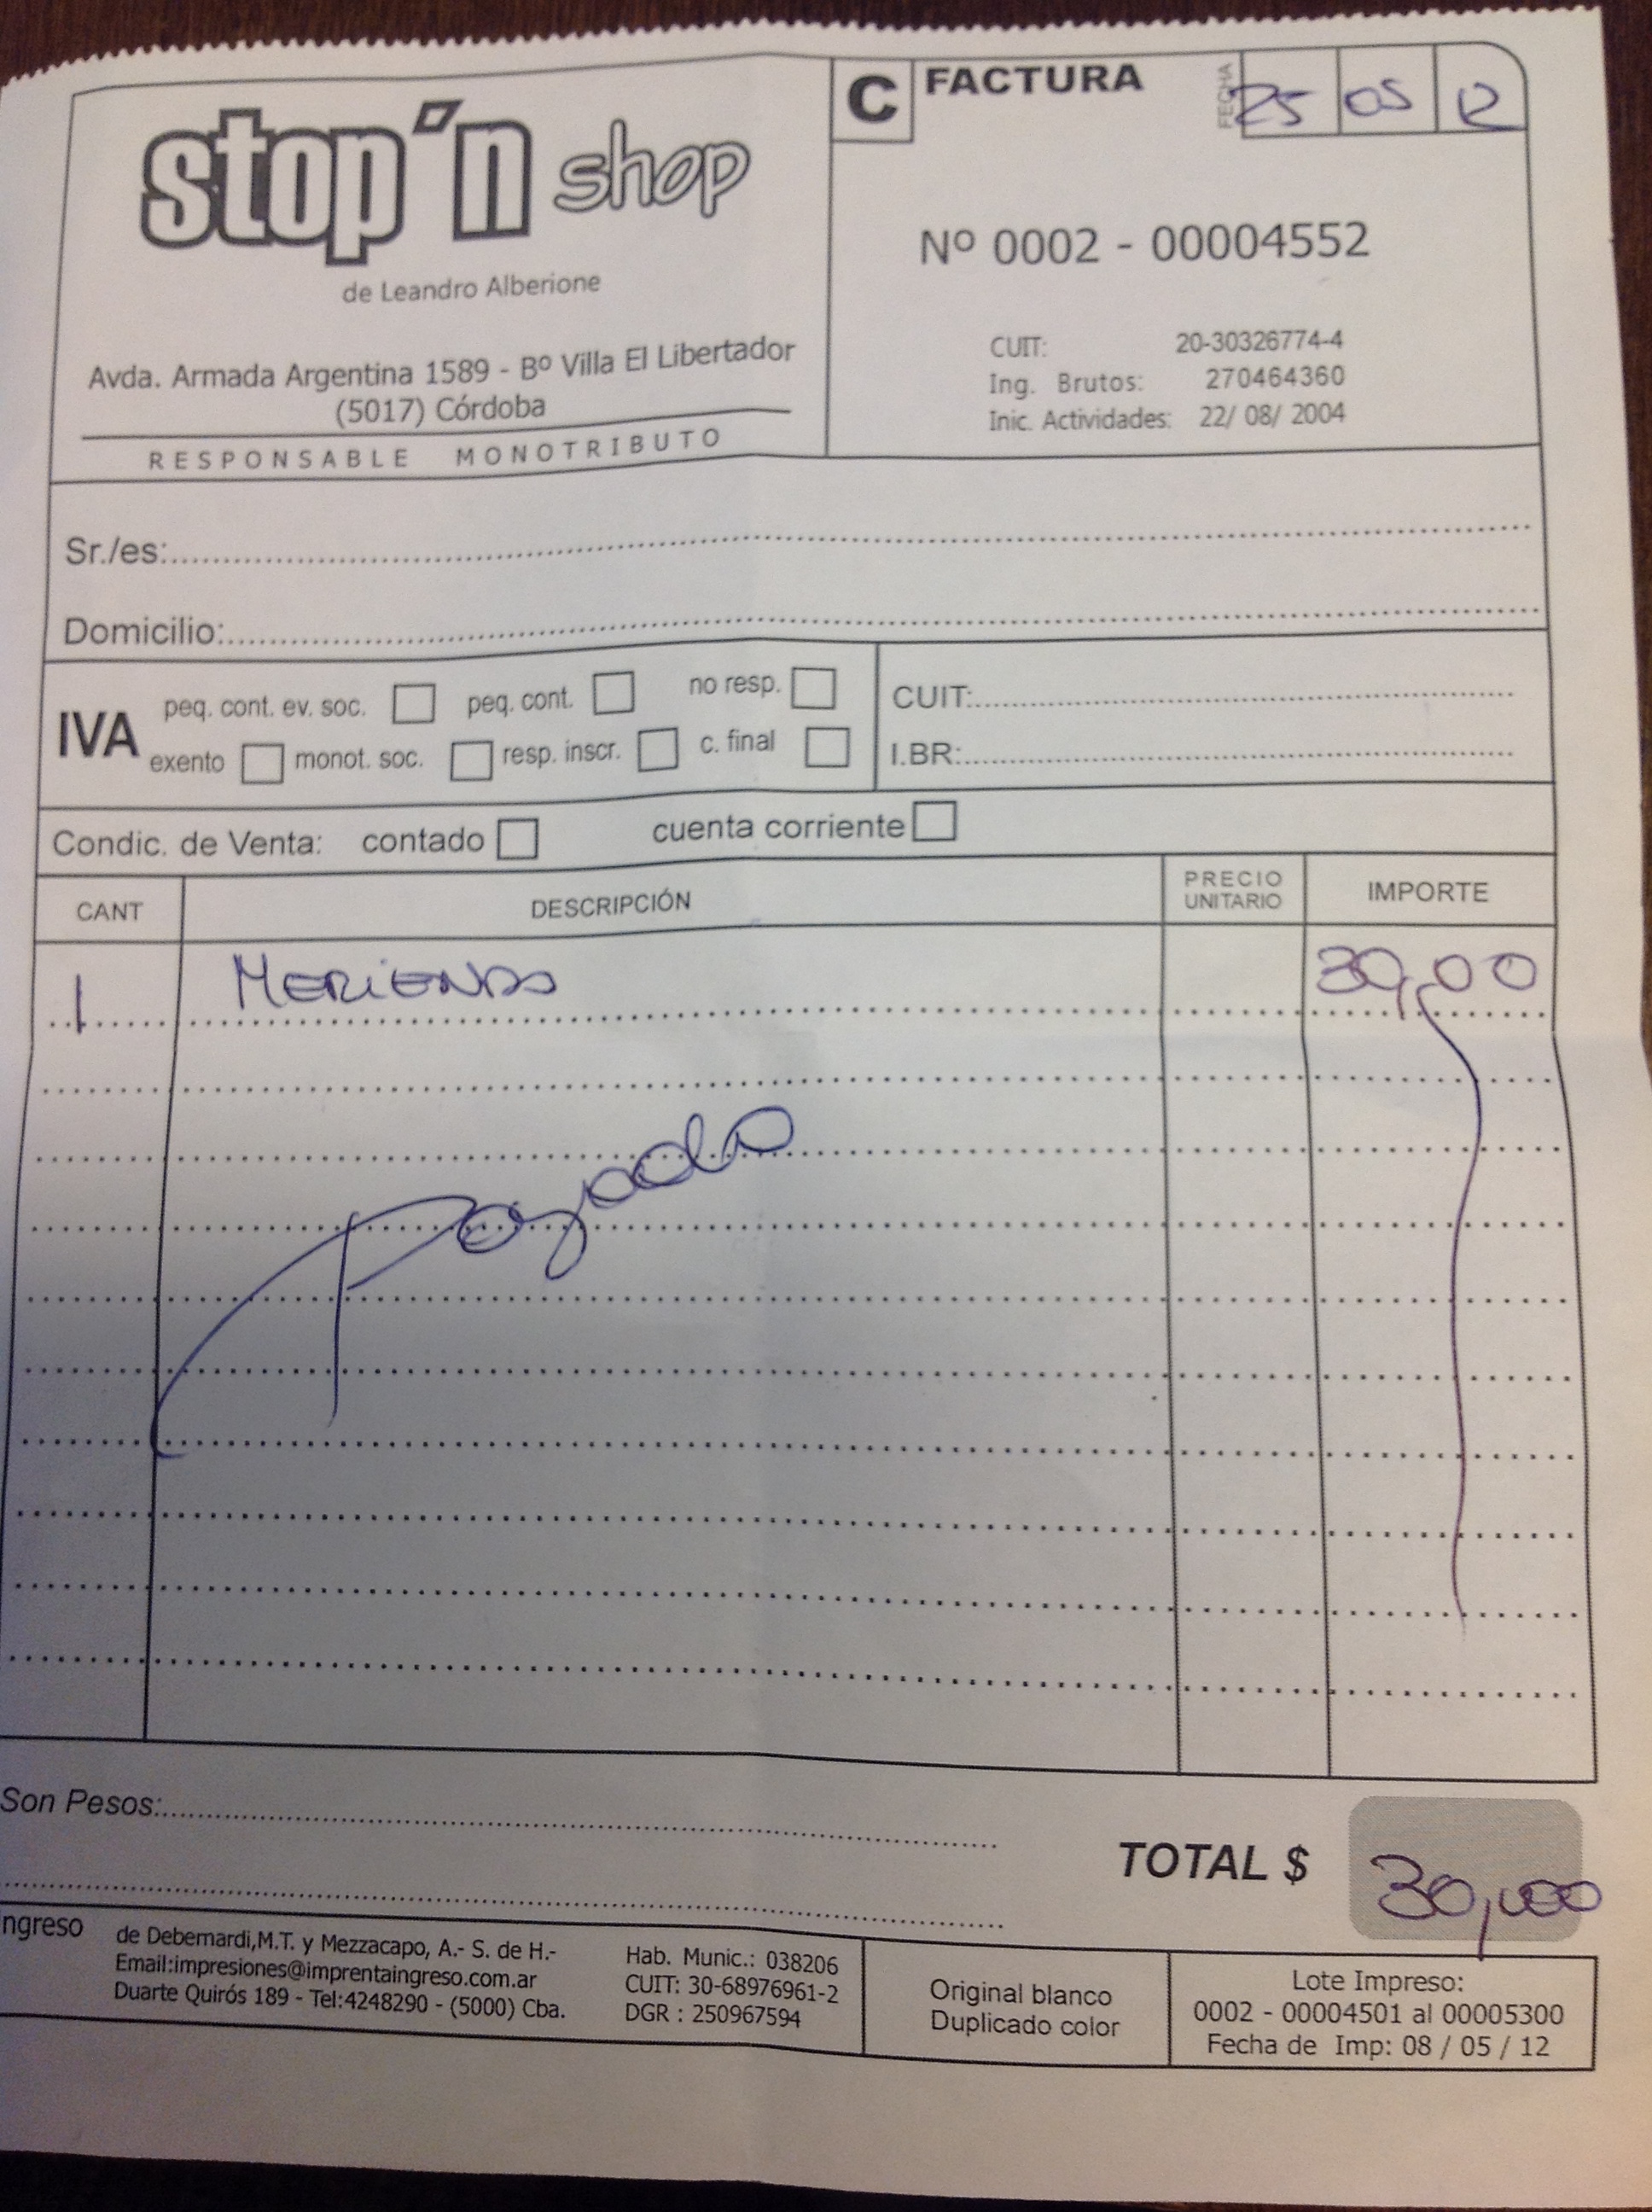 stop´n shop
de Leandro Alberione
Avda. Armada Argentina 1589 - Bº Villa El Libertador
(5017) Córdoba
RESPONSABLE MONOTRIBUTO
C FACTURA
FECHA 25 05 12
Nº 0002 - 00004552
CUIT: 20-30326774-4
Ing. Brutos: 270464360
Inic. Actividades: 22/ 08/ 2004
Sr./es:
Domicilio:
IVA
peq. cont. ev. soc. peq. cont. no resp.
exento monot. soc. resp. inscr. c. final
CUIT:
I.BR:
Condic. de Venta: contado cuenta corriente
CANT DESCRIPCIÓN PRECIO UNITARIO IMPORTE
1 MERiENDA 30,00
Pagado
Son Pesos:
TOTAL $ 30,00
ngreso
de Debernardi,M.T. y Mezzacapo, A.- S. de H.-
Email:impresiones@imprentaingreso.com.ar
Duarte Quirós 189 - Tel:4248290 - (5000) Cba.
Hab. Munic.: 038206
CUIT: 30-68976961-2
DGR : 250967594
Original blanco
Duplicado color
Lote Impreso:
0002 - 00004501 al 00005300
Fecha de Imp: 08 / 05 / 12